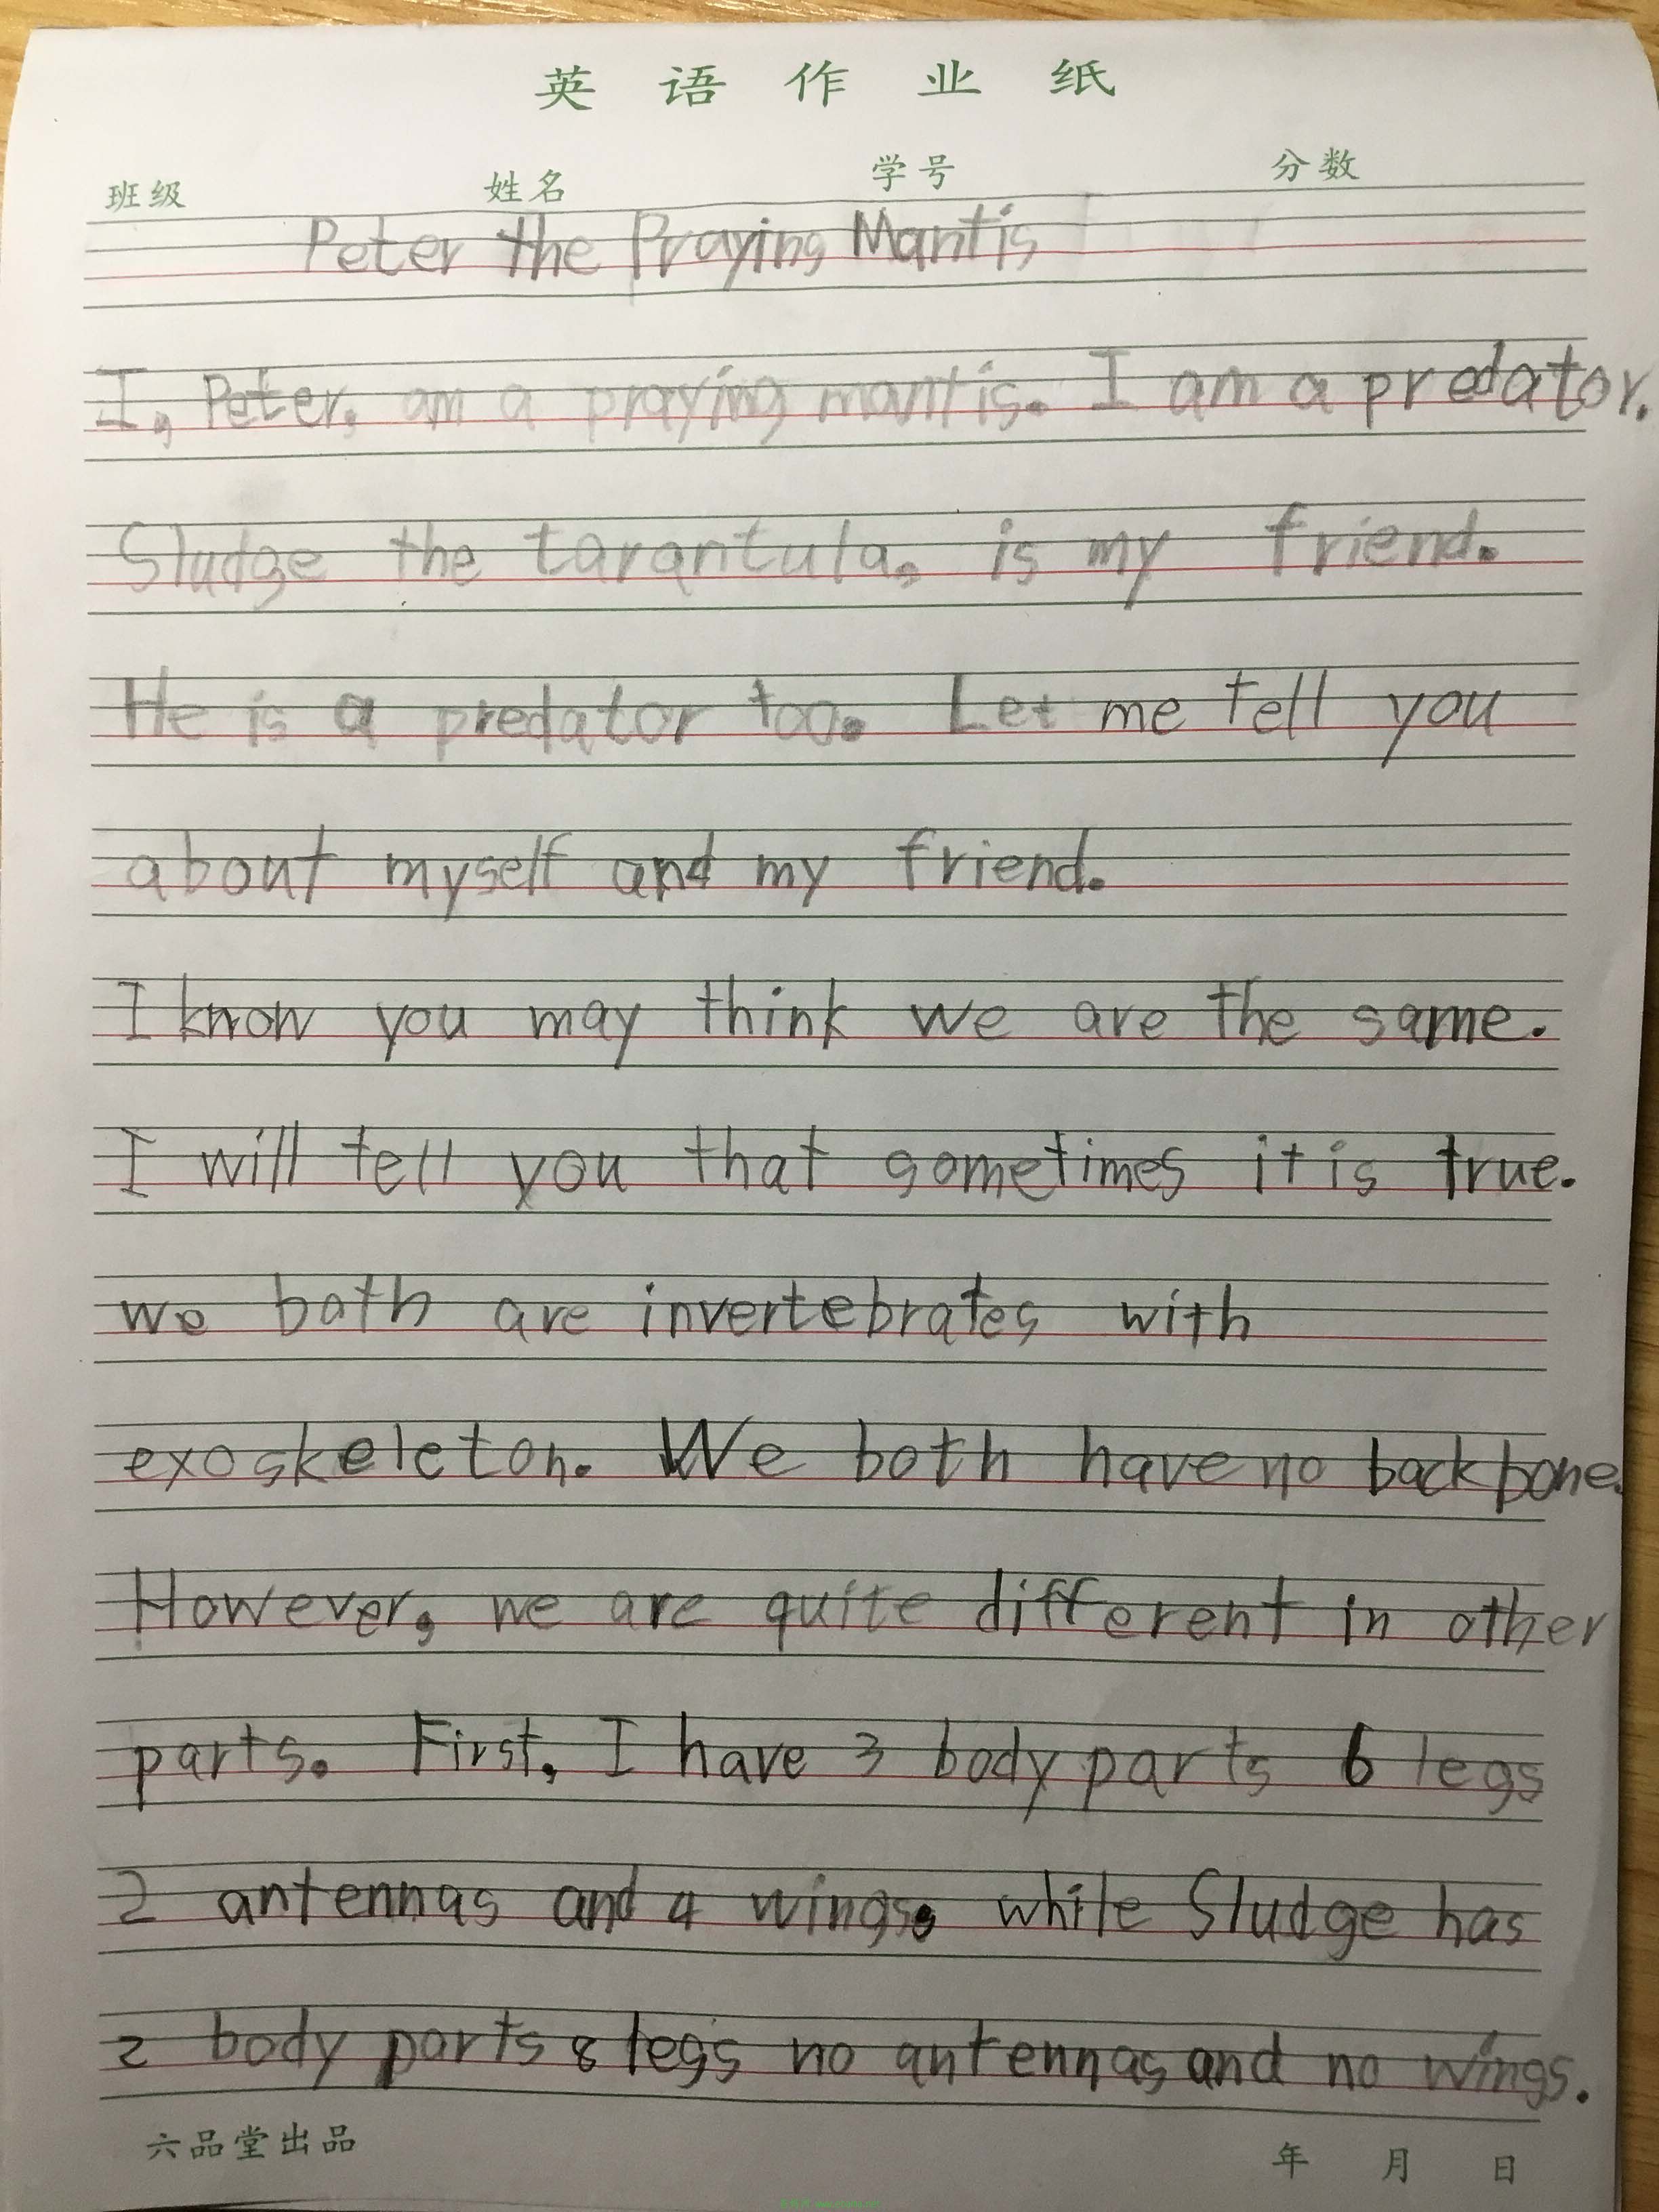 英语作业纸
班级 姓名 学号 分数
Peter the Praying Mantis
I, Peter, am a praying mantis. I am a predator.
Sludge the tarantula, is my friend.
He is a predator too. Let me tell you
about myself and my friend.
I know you may think we are the same.
I will tell you that sometimes it is true.
we both are invertebrates with
exoskeleton. We both have no backbone.
However, we are quite different in other
parts. First, I have 3 body parts 6 legs
2 antennas and 4 wings. while Sludge has
2 body parts 8 legs no antennas and no wings.
六品堂出品 年 月 日